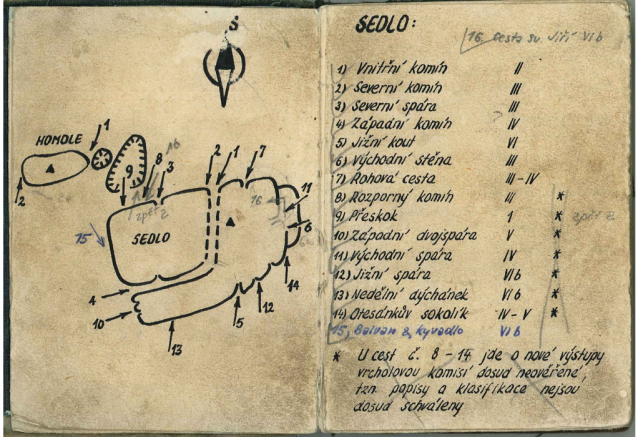 S
HOMOLE
1
2
9
8
16
3
2
1
7
11
16
6
zpět 2
SEDLO
15
14
4
10
13
5
12
SEDLO:
16, Cesta sv. Jiří VI b
1) Vnitřní komín II
2) Severní komín III
3) Severní spára III
4) Západní komín IV
5) Jižní kout VI
6) Východní stěna III
7) Rohová cesta III - IV
8) Rozporný komín III *
9) Přeskok 1 * zpět 2
10) Západní dvojspára V *
11) Východní spára IV *
12) Jižní spára VI b *
13) Nedělní dýchánek VI b *
14) Otesánkův sokolík IV - V *
15, Balvan & kyvadlo VI b
* U cest č. 8 - 14 jde o nové výstupy
vrcholovou komisí dosud neověřené,
tzn. popisy a klasifikace nejsou
dosud schváleny